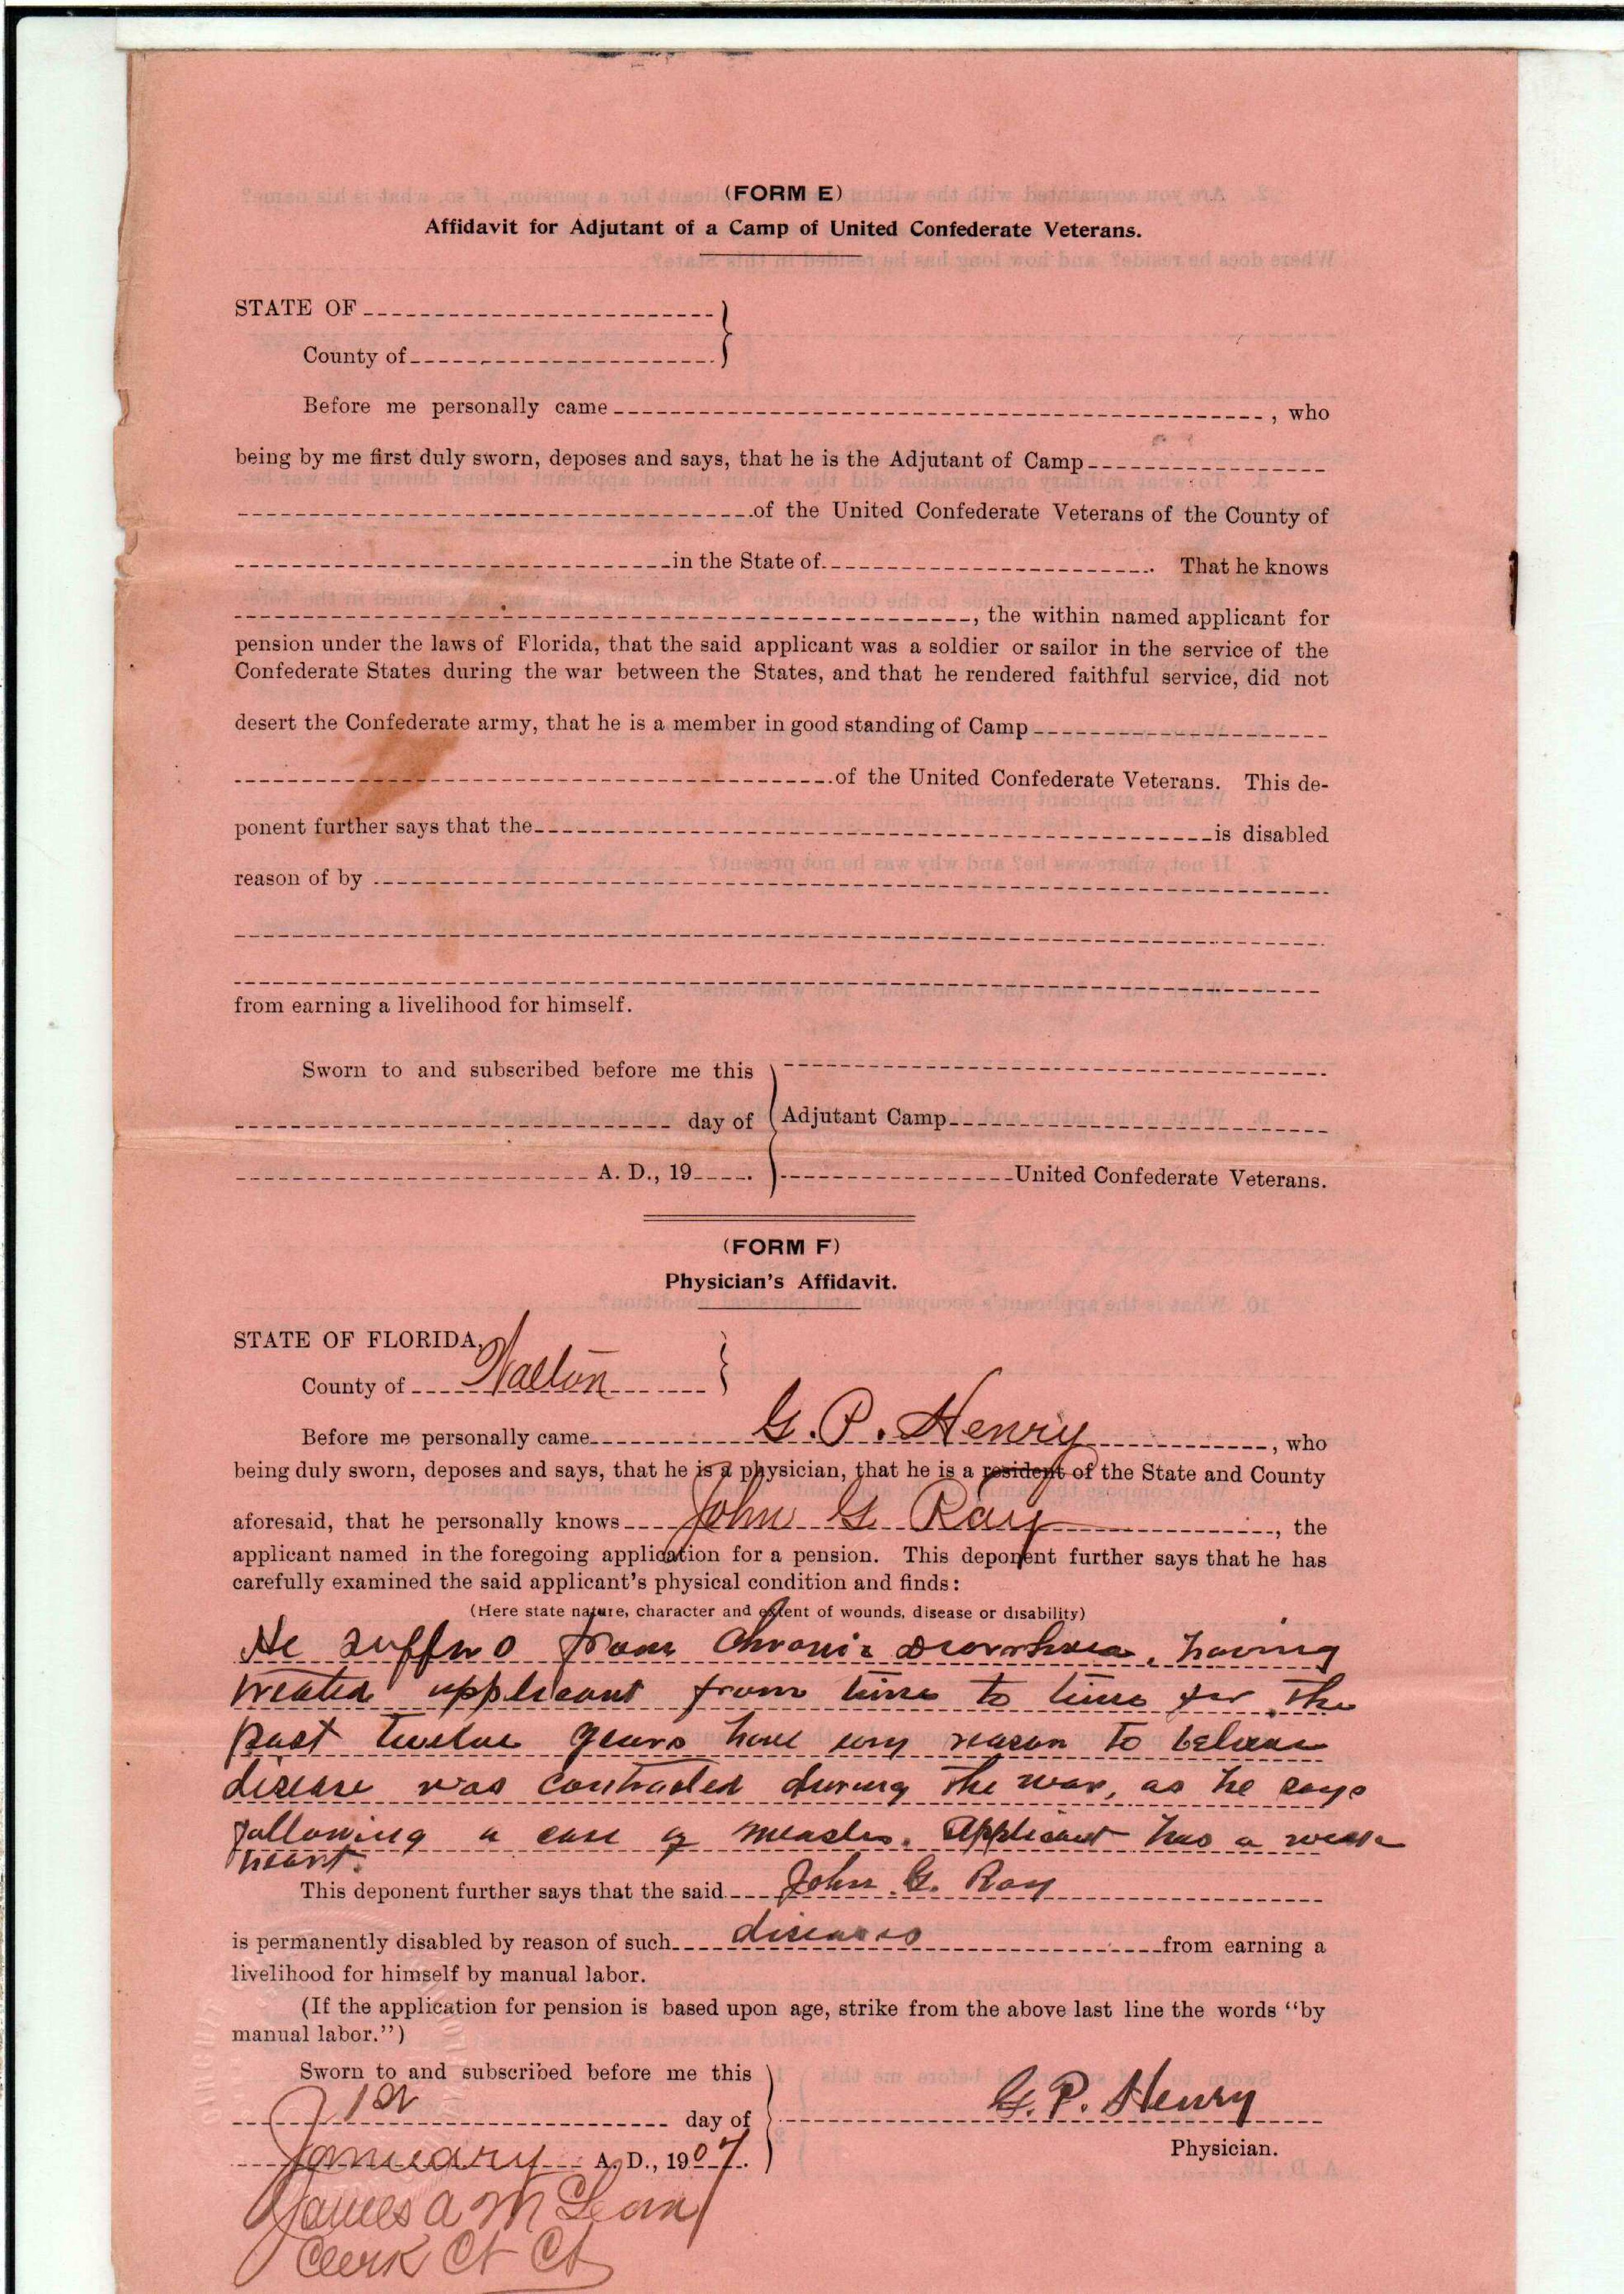 (FORM E)
Affidavit for Adjutant of a Camp of United Confederate Veterans.
STATE OF
County of
Before me personally came , who
being by me first duly sworn, deposes and says, that he is the Adjutant of Camp
of the United Confederate Veterans of the County of
in the State of . That he knows
, the within named applicant for
pension under the laws of Florida, that the said applicant was a soldier or sailor in the service of the
Confederate States during the war between the States, and that he rendered faithful service, did not
desert the Confederate army, that he is a member in good standing of Camp
of the United Confederate Veterans. This de-
ponent further says that the is disabled
reason of by
from earning a livelihood for himself.
Sworn to and subscribed before me this
day of Adjutant Camp
A. D., 19 . United Confederate Veterans.
(FORM F)
Physician's Affidavit.
STATE OF FLORIDA,
County of Walton
Before me personally came G. P. Henry , who
being duly sworn, deposes and says, that he is a physician, that he is a resident of the State and County
aforesaid, that he personally knows John G Ray , the
applicant named in the foregoing application for a pension. This deponent further says that he has
carefully examined the said applicant's physical condition and finds:
(Here state nature, character and extent of wounds, disease or disability)
He suffers from Chronic Diarrhoea, having
treated applicant from time to time for the
past twelve years have every reason to believe
disease was contracted during the war, as he says
following a case of measles. Applicant has a weak
heart.
This deponent further says that the said John G. Ray
is permanently disabled by reason of such diseases from earning a
livelihood for himself by manual labor.
(If the application for pension is based upon age, strike from the above last line the words "by
manual labor.")
Sworn to and subscribed before me this
1st day of G. P. Henry
January A. D., 1907. Physician.
James A McLean
Clerk Ct Ct